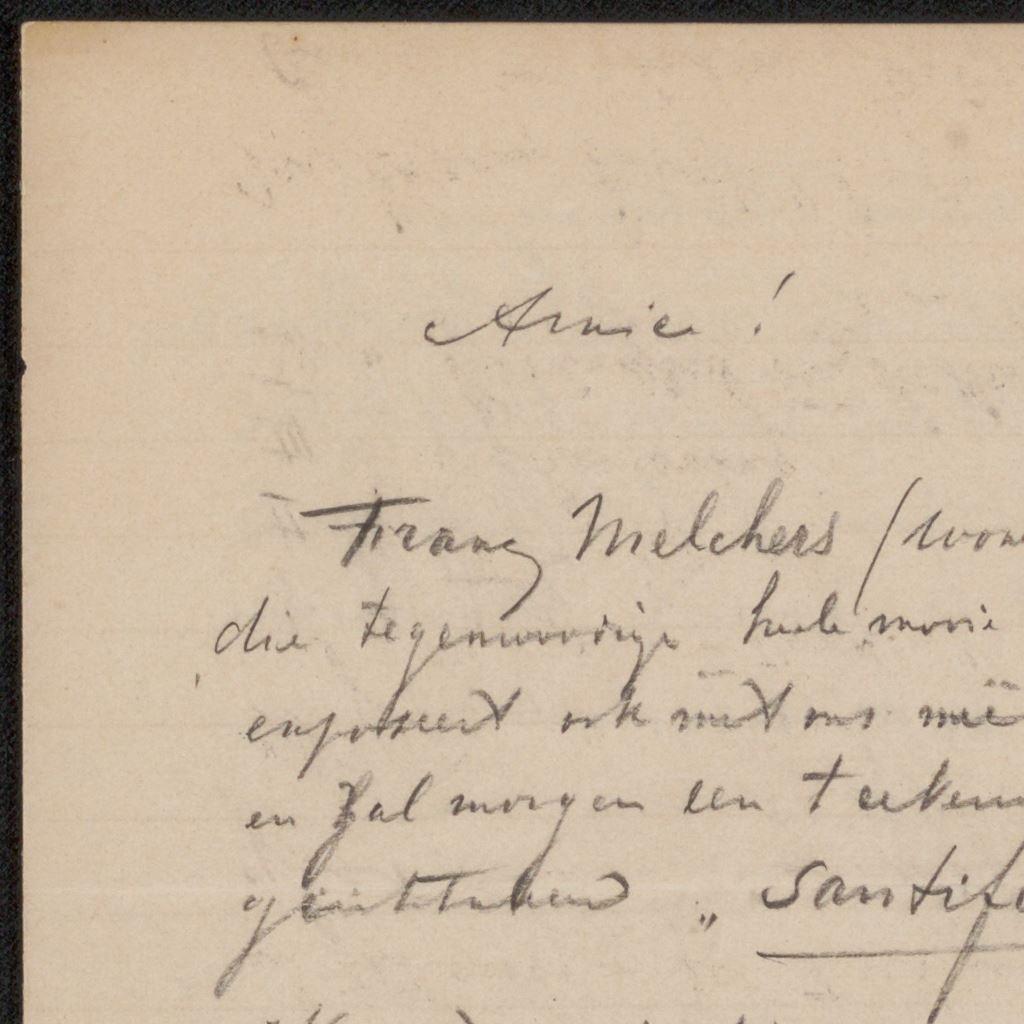 Amice!
Franz Melchers (wone
die tegenwoordig heele mooie
exposeert ook met ons meê
en zal morgen een teeken
getiteld „Santifo